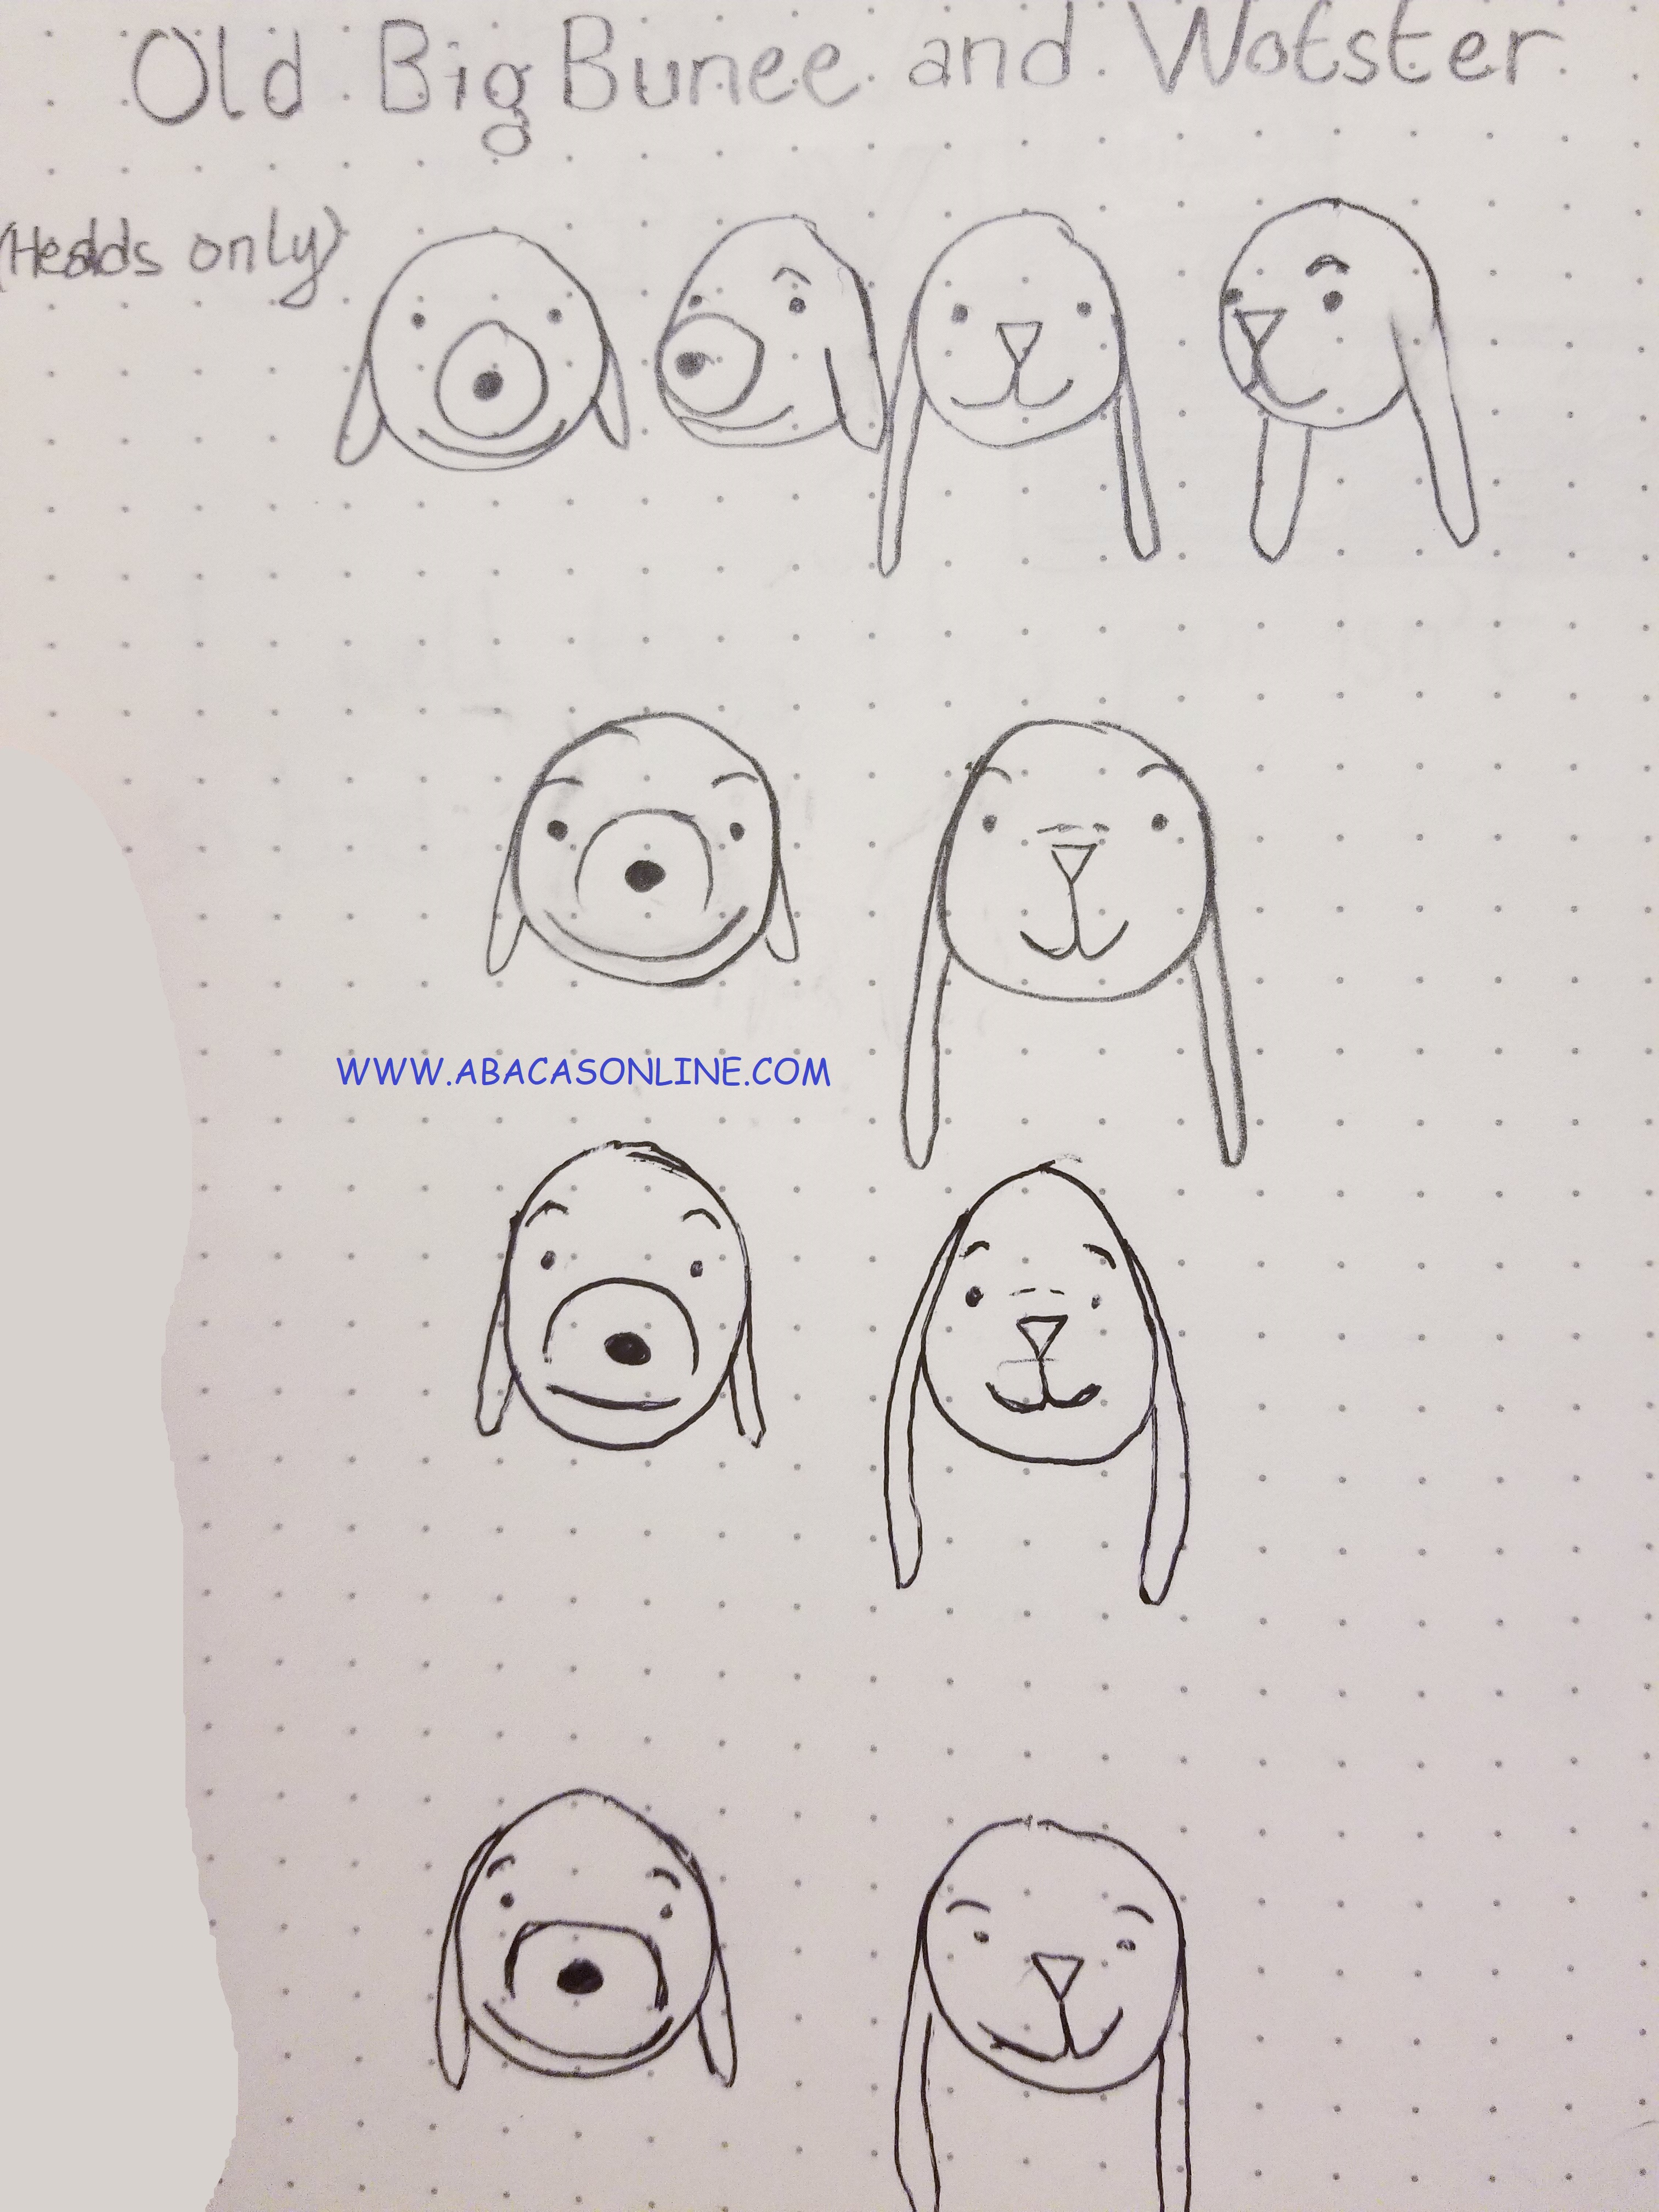 Old Big Bunee and Wotster
(Heads only)
WWW.ABACASONLINE.COM